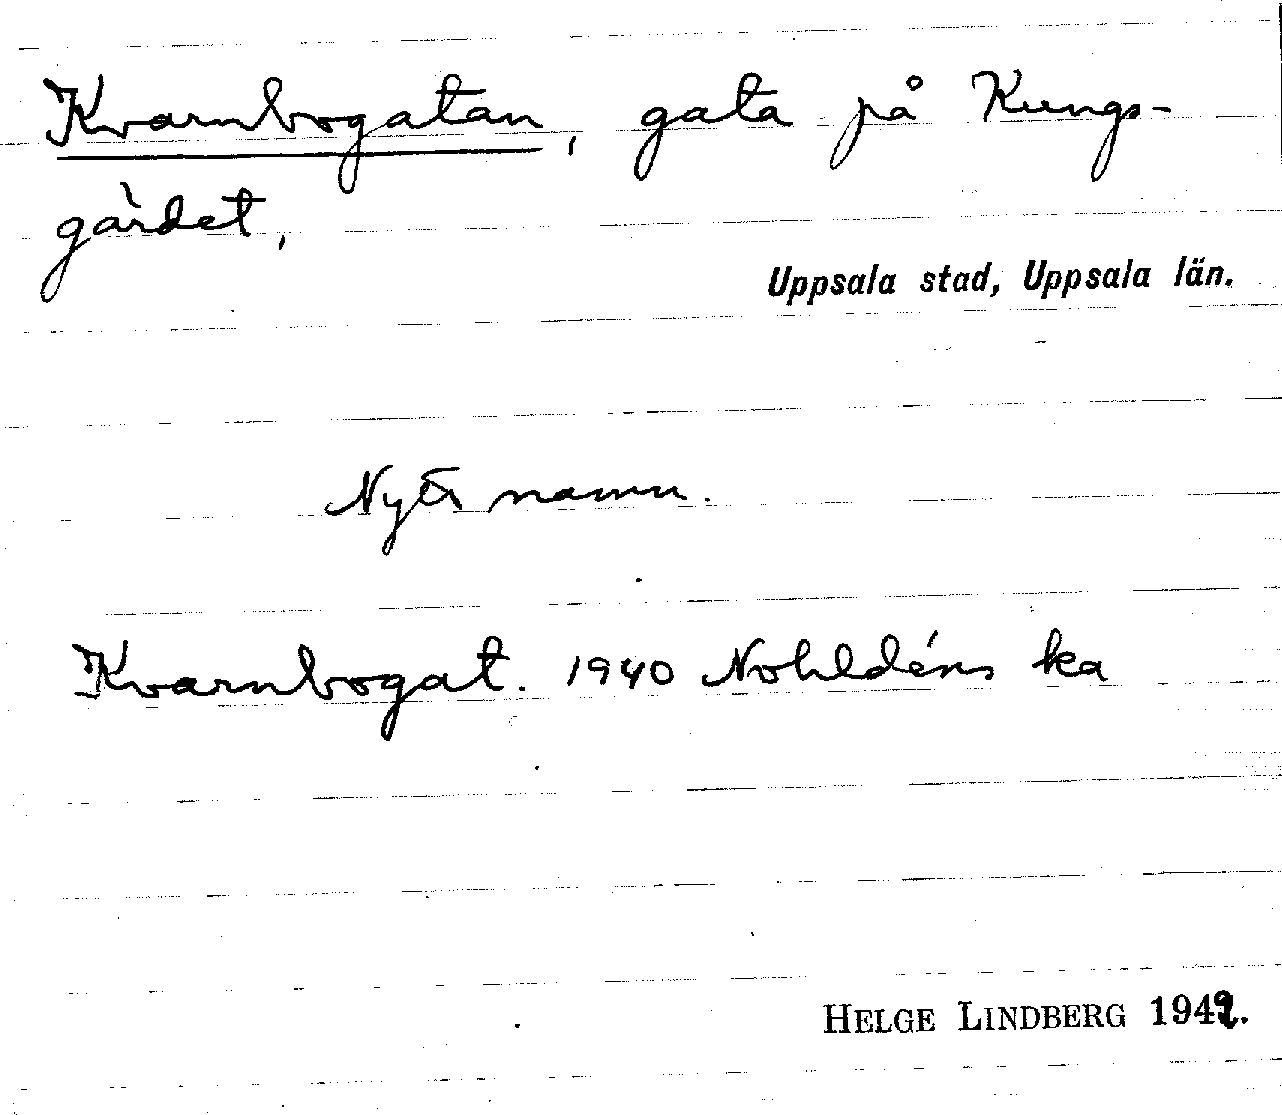 Kvarnbogatan, gata på Kungs-
gärdet,
Uppsala stad, Uppsala län.
Nytt namn.
Kvarnbogat. 1940 Nohldéns ka
HELGE LINDBERG